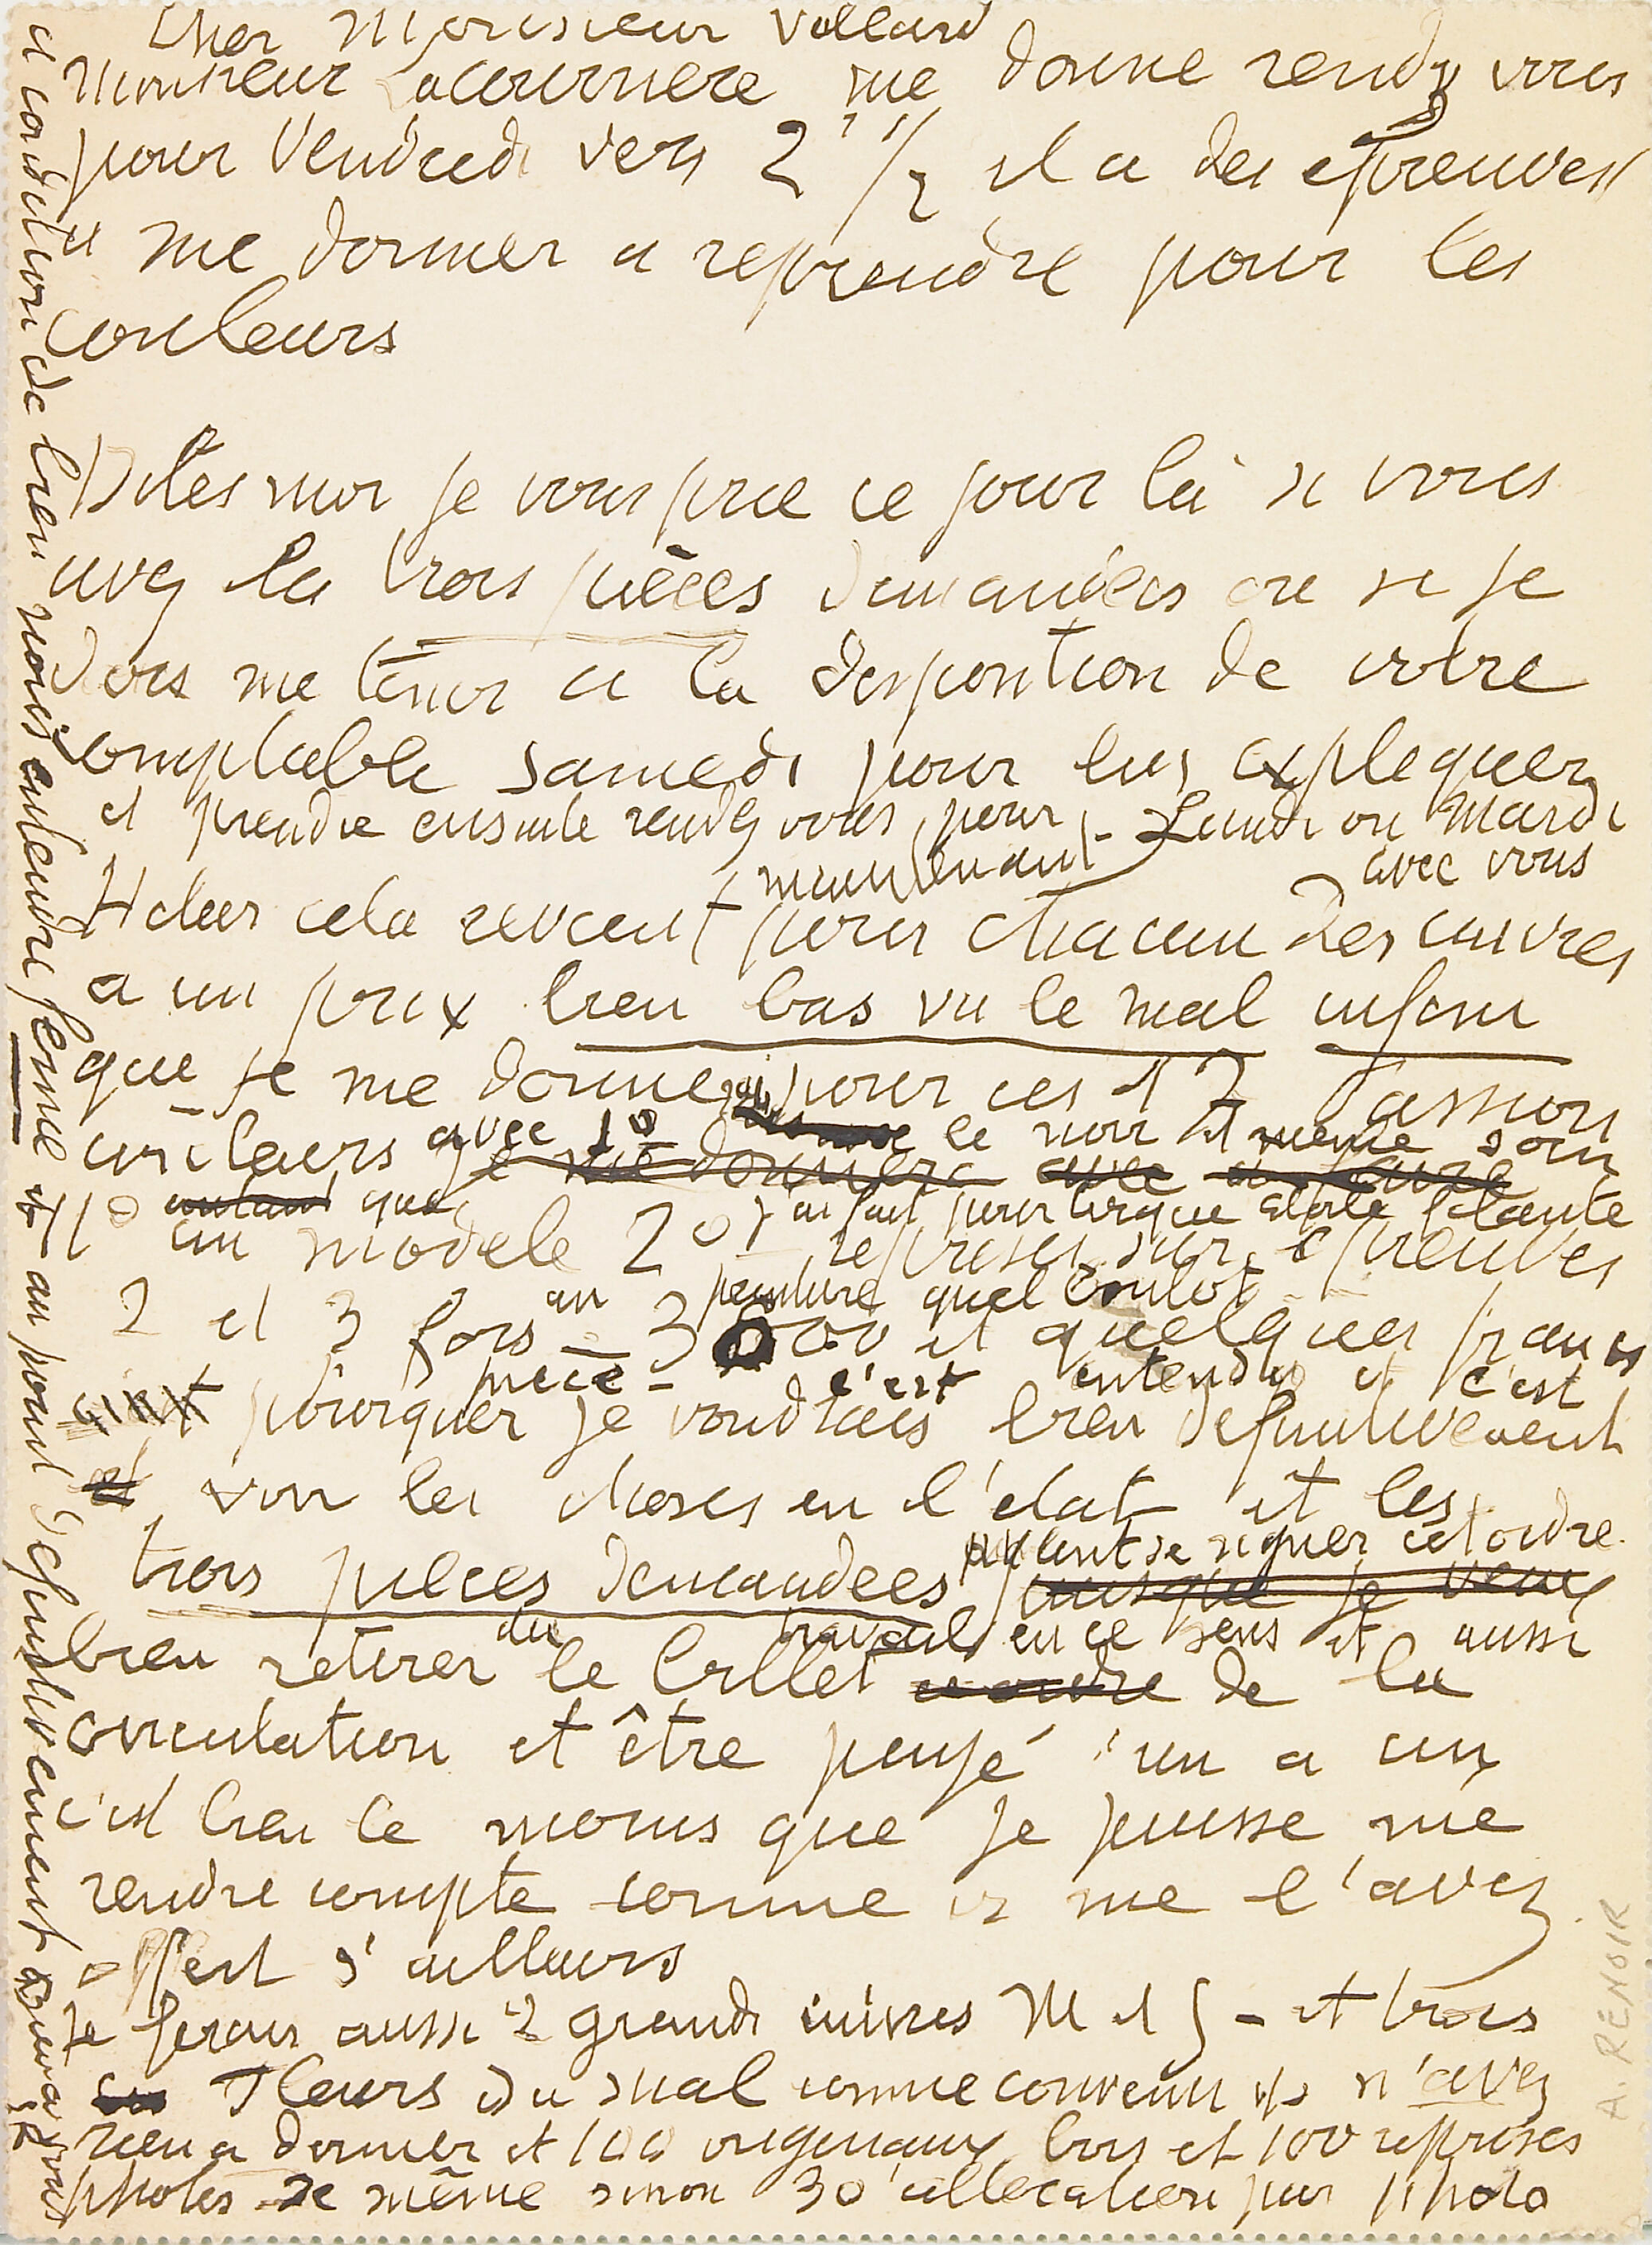 Cher Monsieur Vollard
Monsieur Lacourière me donne rendz vous
pour Vendredi vers 2 h 1/2 il a des épreuves
a me donner a reprendre pour les
couleurs
Dites moi je vous prie ce jour là si vous
avez la trois pièces demandées ou si je
dois me tenir a la disposition de votre
comptable samedi pour lui expliquer
et prendre ensuite rendez vous pour Lundi ou Mardi
avec vous
maintenant
Hélas cela revient pour chacun des cuivres
a un prix bien bas vu le mal infini
que je me donne pour ces 17 Passion
couleurs avec 1° le noir et même soin
autant que
1° un modèle 2° reprises sur épreuves
2 et 3 fois 3000 et quelques francs
peinture quel boulot
pièce - c'est entendu et c'est
pourquoi je voudrais bien définitivement
voir les choses en l'état et les
trois pièces demandées avant de signer cet ordre
puisque je veux
du travail en ce sens et aussi
bien retirer le billet de la
circulation et être payé un a un
c'est bien le moins que je puisse me
rendre compte comme vs me l'avez
offert d'ailleurs
Je ferais aussi 2 grands cuivres M et G - et trois
Fleurs du mal comme convenu vs n'avez
rien a donner et 100 originaux bois et 100 reprises
photos de même sinon 30 allocation par photo
a condition de bien nous entendre ferme et au point définitivement
A. RENOIR